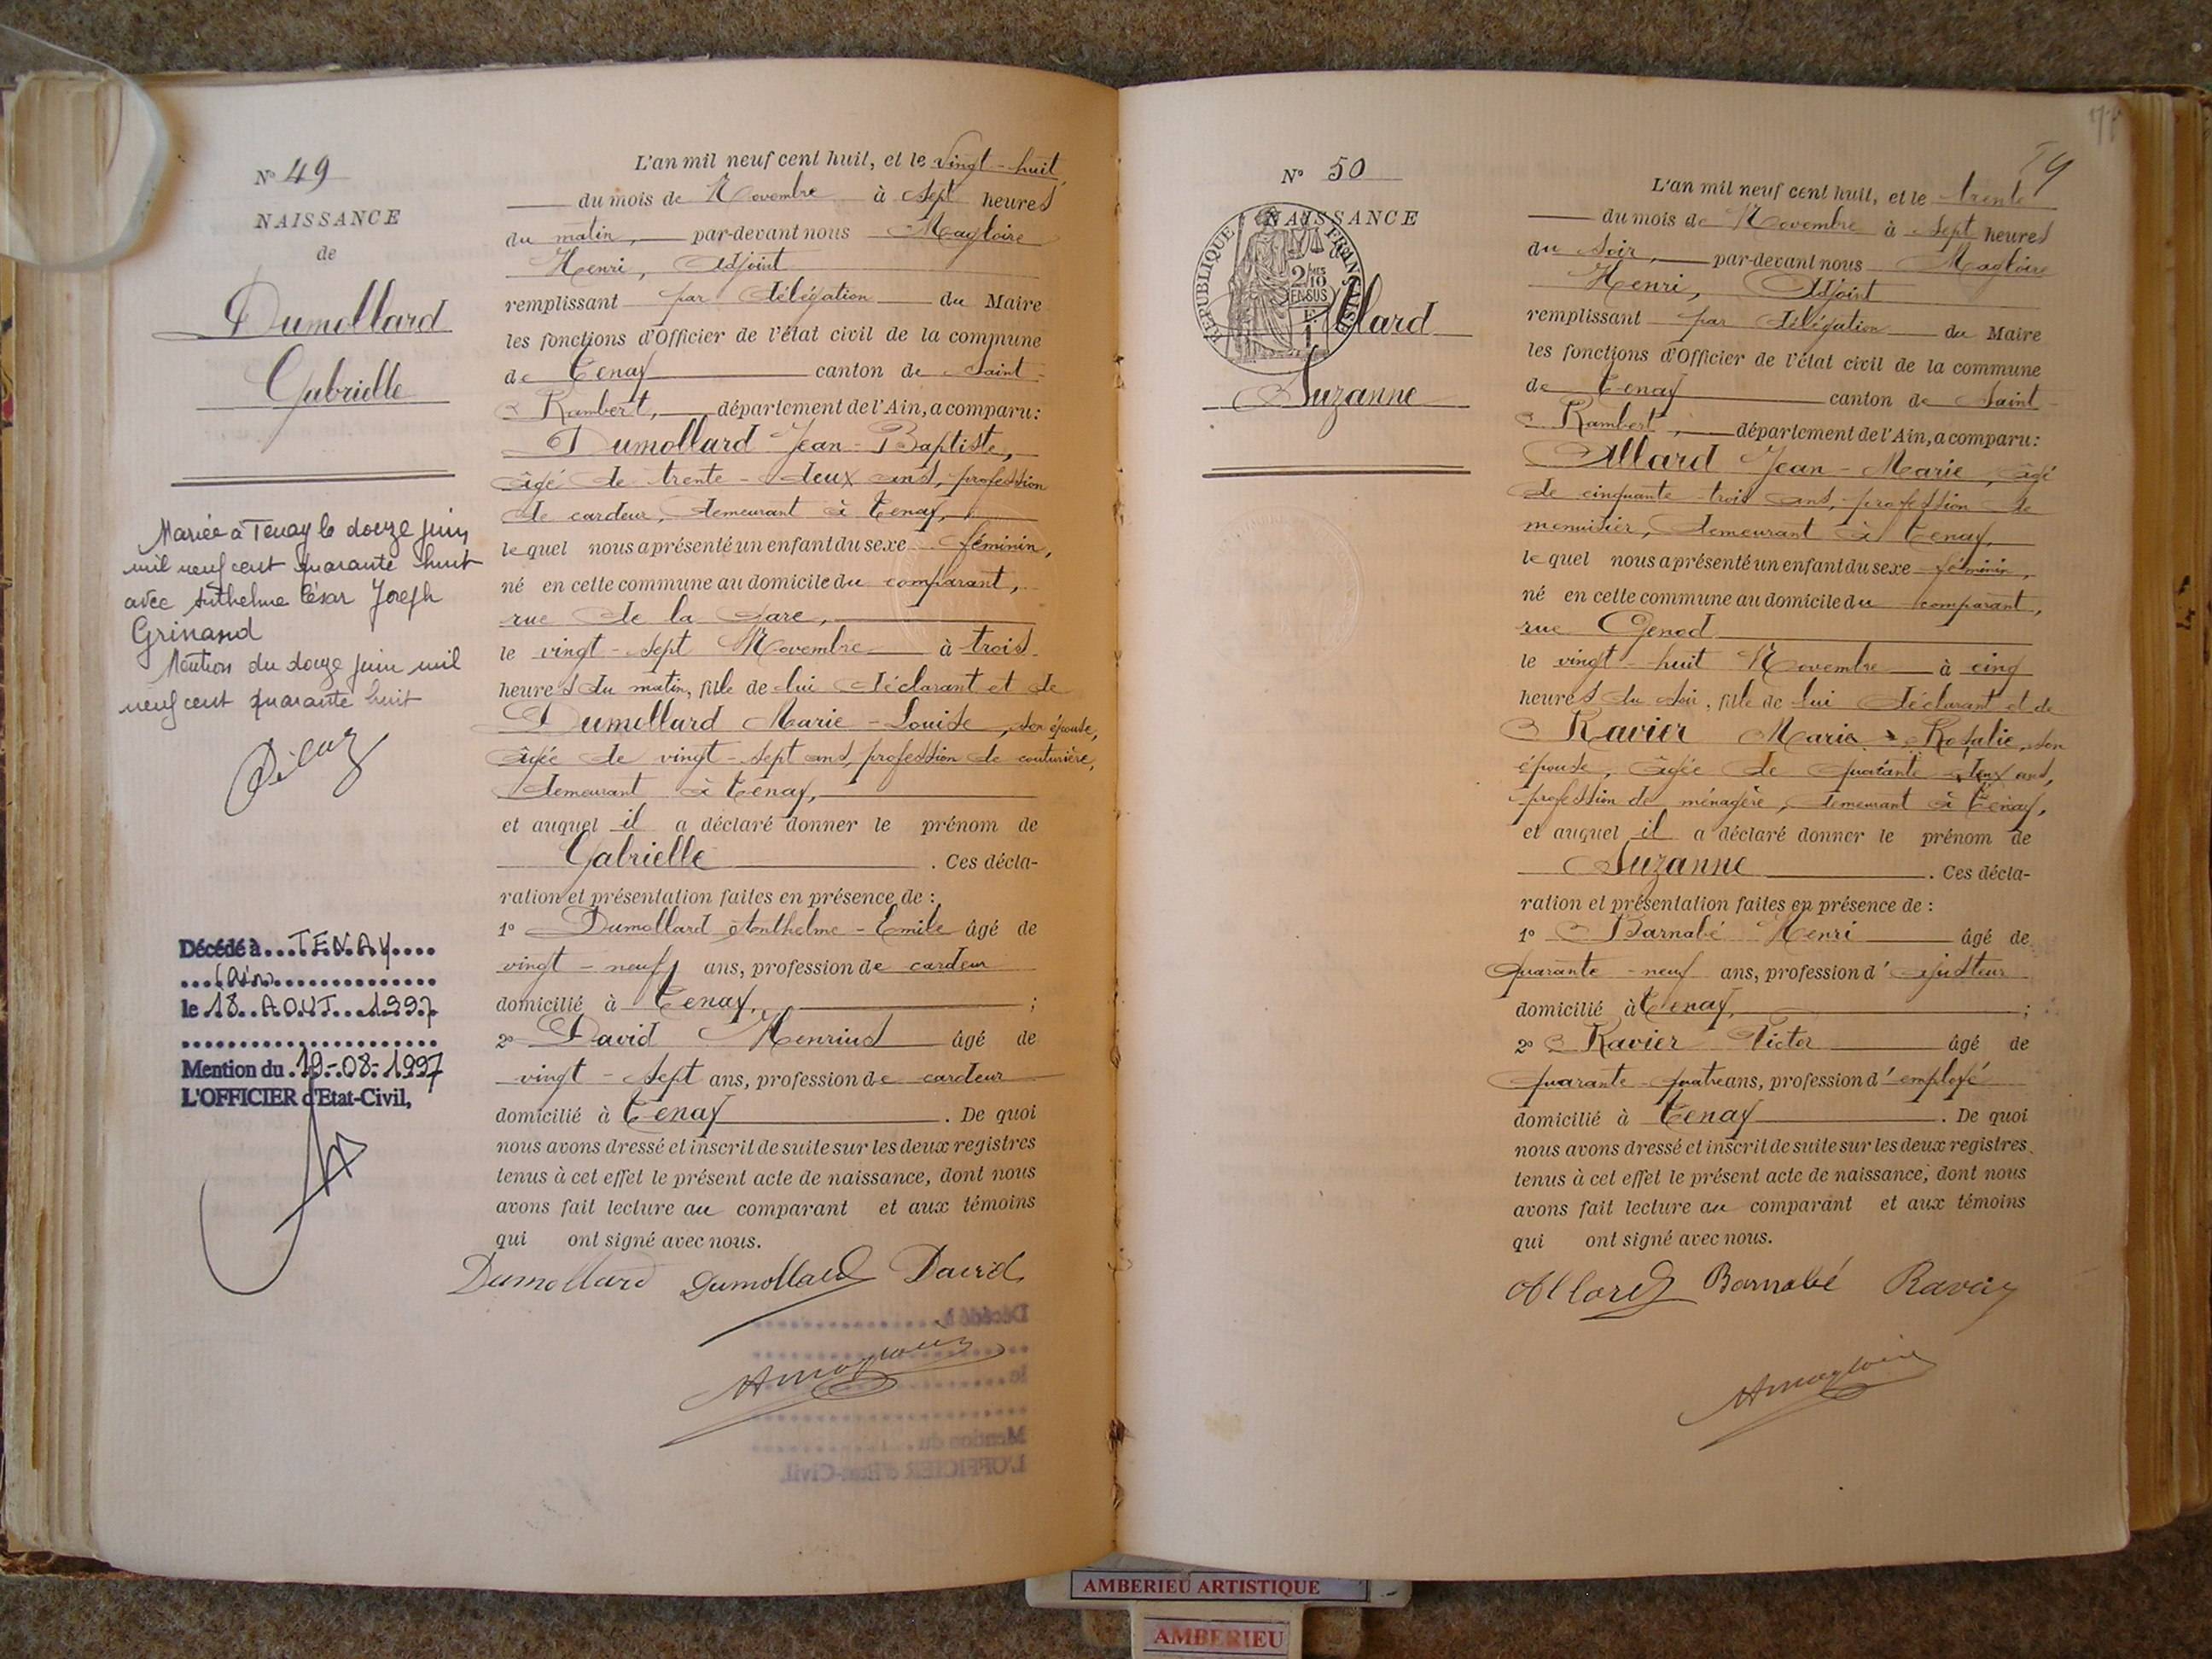 N° 49
NAISSANCE
de
Dumollard
Gabrielle
Mariée à Tenay le douze juin
mil neuf cent quarante huit
avec Anthelme César Joseph
Grinand
Mention du douze juin mil
neuf cent quarante huit
Décédé à TENAY
(Ain)
le 18 AOUT 1997
Mention du 19-08-1997
L'OFFICIER d'Etat-Civil,
L'an mil neuf cent huit, et le vingt-huit
du mois de Novembre à sept heures
du matin, par-devant nous Magloire
Henri, Adjoint
remplissant par délégation du Maire
les fonctions d'Officier de l'état civil de la commune
de Tenay canton de Saint-
Rambert, département de l'Ain, a comparu:
Dumollard Jean-Baptiste,
âgé de trente-deux ans, profession
de cardeur, demeurant à Tenay,
lequel nous a présenté un enfant du sexe féminin,
né en cette commune au domicile du comparant,
rue de la Gare,
le vingt-sept Novembre à trois
heures du matin, fille de lui déclarant et de
Dumollard Marie-Louise, son épouse,
âgée de vingt-sept ans, profession de couturière,
demeurant à Tenay,
et auquel il a déclaré donner le prénom de
Gabrielle . Ces décla-
ration et présentation faites en présence de :
1° Dumollard Anthelme-Emile âgé de
vingt-neuf ans, profession de cardeur
domicilié à Tenay, ;
2° David Henrius âgé de
vingt-sept ans, profession de cardeur
domicilié à Tenay . De quoi
nous avons dressé et inscrit de suite sur les deux registres
tenus à cet effet le présent acte de naissance, dont nous
avons fait lecture au comparant et aux témoins
qui ont signé avec nous.
Dumollard Dumollard David
HMagloire
77
N° 50
NAISSANCE
de
REPUBLIQUE FRANÇAISE
2/10 EN SUS
Allard
Suzanne
L'an mil neuf cent huit, et le trente
du mois de Novembre à sept heures
du soir, par-devant nous Magloire
Henri, Adjoint
remplissant par délégation du Maire
les fonctions d'Officier de l'état civil de la commune
de Tenay canton de Saint-
Rambert, département de l'Ain, a comparu:
Allard Jean-Marie, âgé
de cinquante-trois ans, profession de
menuisier, demeurant à Tenay,
lequel nous a présenté un enfant du sexe féminin,
né en cette commune au domicile du comparant,
rue Genod
le vingt-huit Novembre à cinq
heures du soir, fille de lui déclarant et de
Ravier Marie-Rosalie, son
épouse, âgée de quarante-deux ans,
profession de ménagère, demeurant à Tenay,
et auquel il a déclaré donner le prénom de
Suzanne . Ces décla-
ration et présentation faites en présence de :
1° Barnabé Henri âgé de
quarante-neuf ans, profession d'ajusteur
domicilié à Tenay, ;
2° Ravier Victor âgé de
quarante-quatre ans, profession d'employé
domicilié à Tenay . De quoi
nous avons dressé et inscrit de suite sur les deux registres
tenus à cet effet le présent acte de naissance, dont nous
avons fait lecture au comparant et aux témoins
qui ont signé avec nous.
Allard Barnabé Ravier
HMagloire
AMBERIEU ARTISTIQUE
AMBERIEU